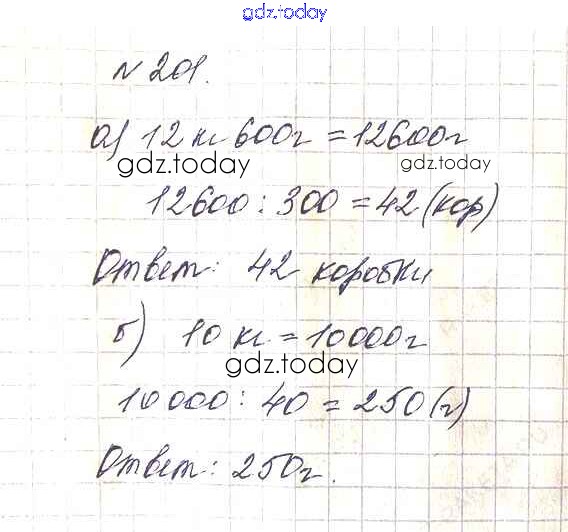 gdz.today
№ 201.
а) 12 кг 600г = 12600г
gdz.today gdz.today
12600 : 300 = 42 (кор)
Ответ: 42 коробки
б) 10 кг = 10000г
gdz.today
10000 : 40 = 250 (г)
Ответ: 250г.